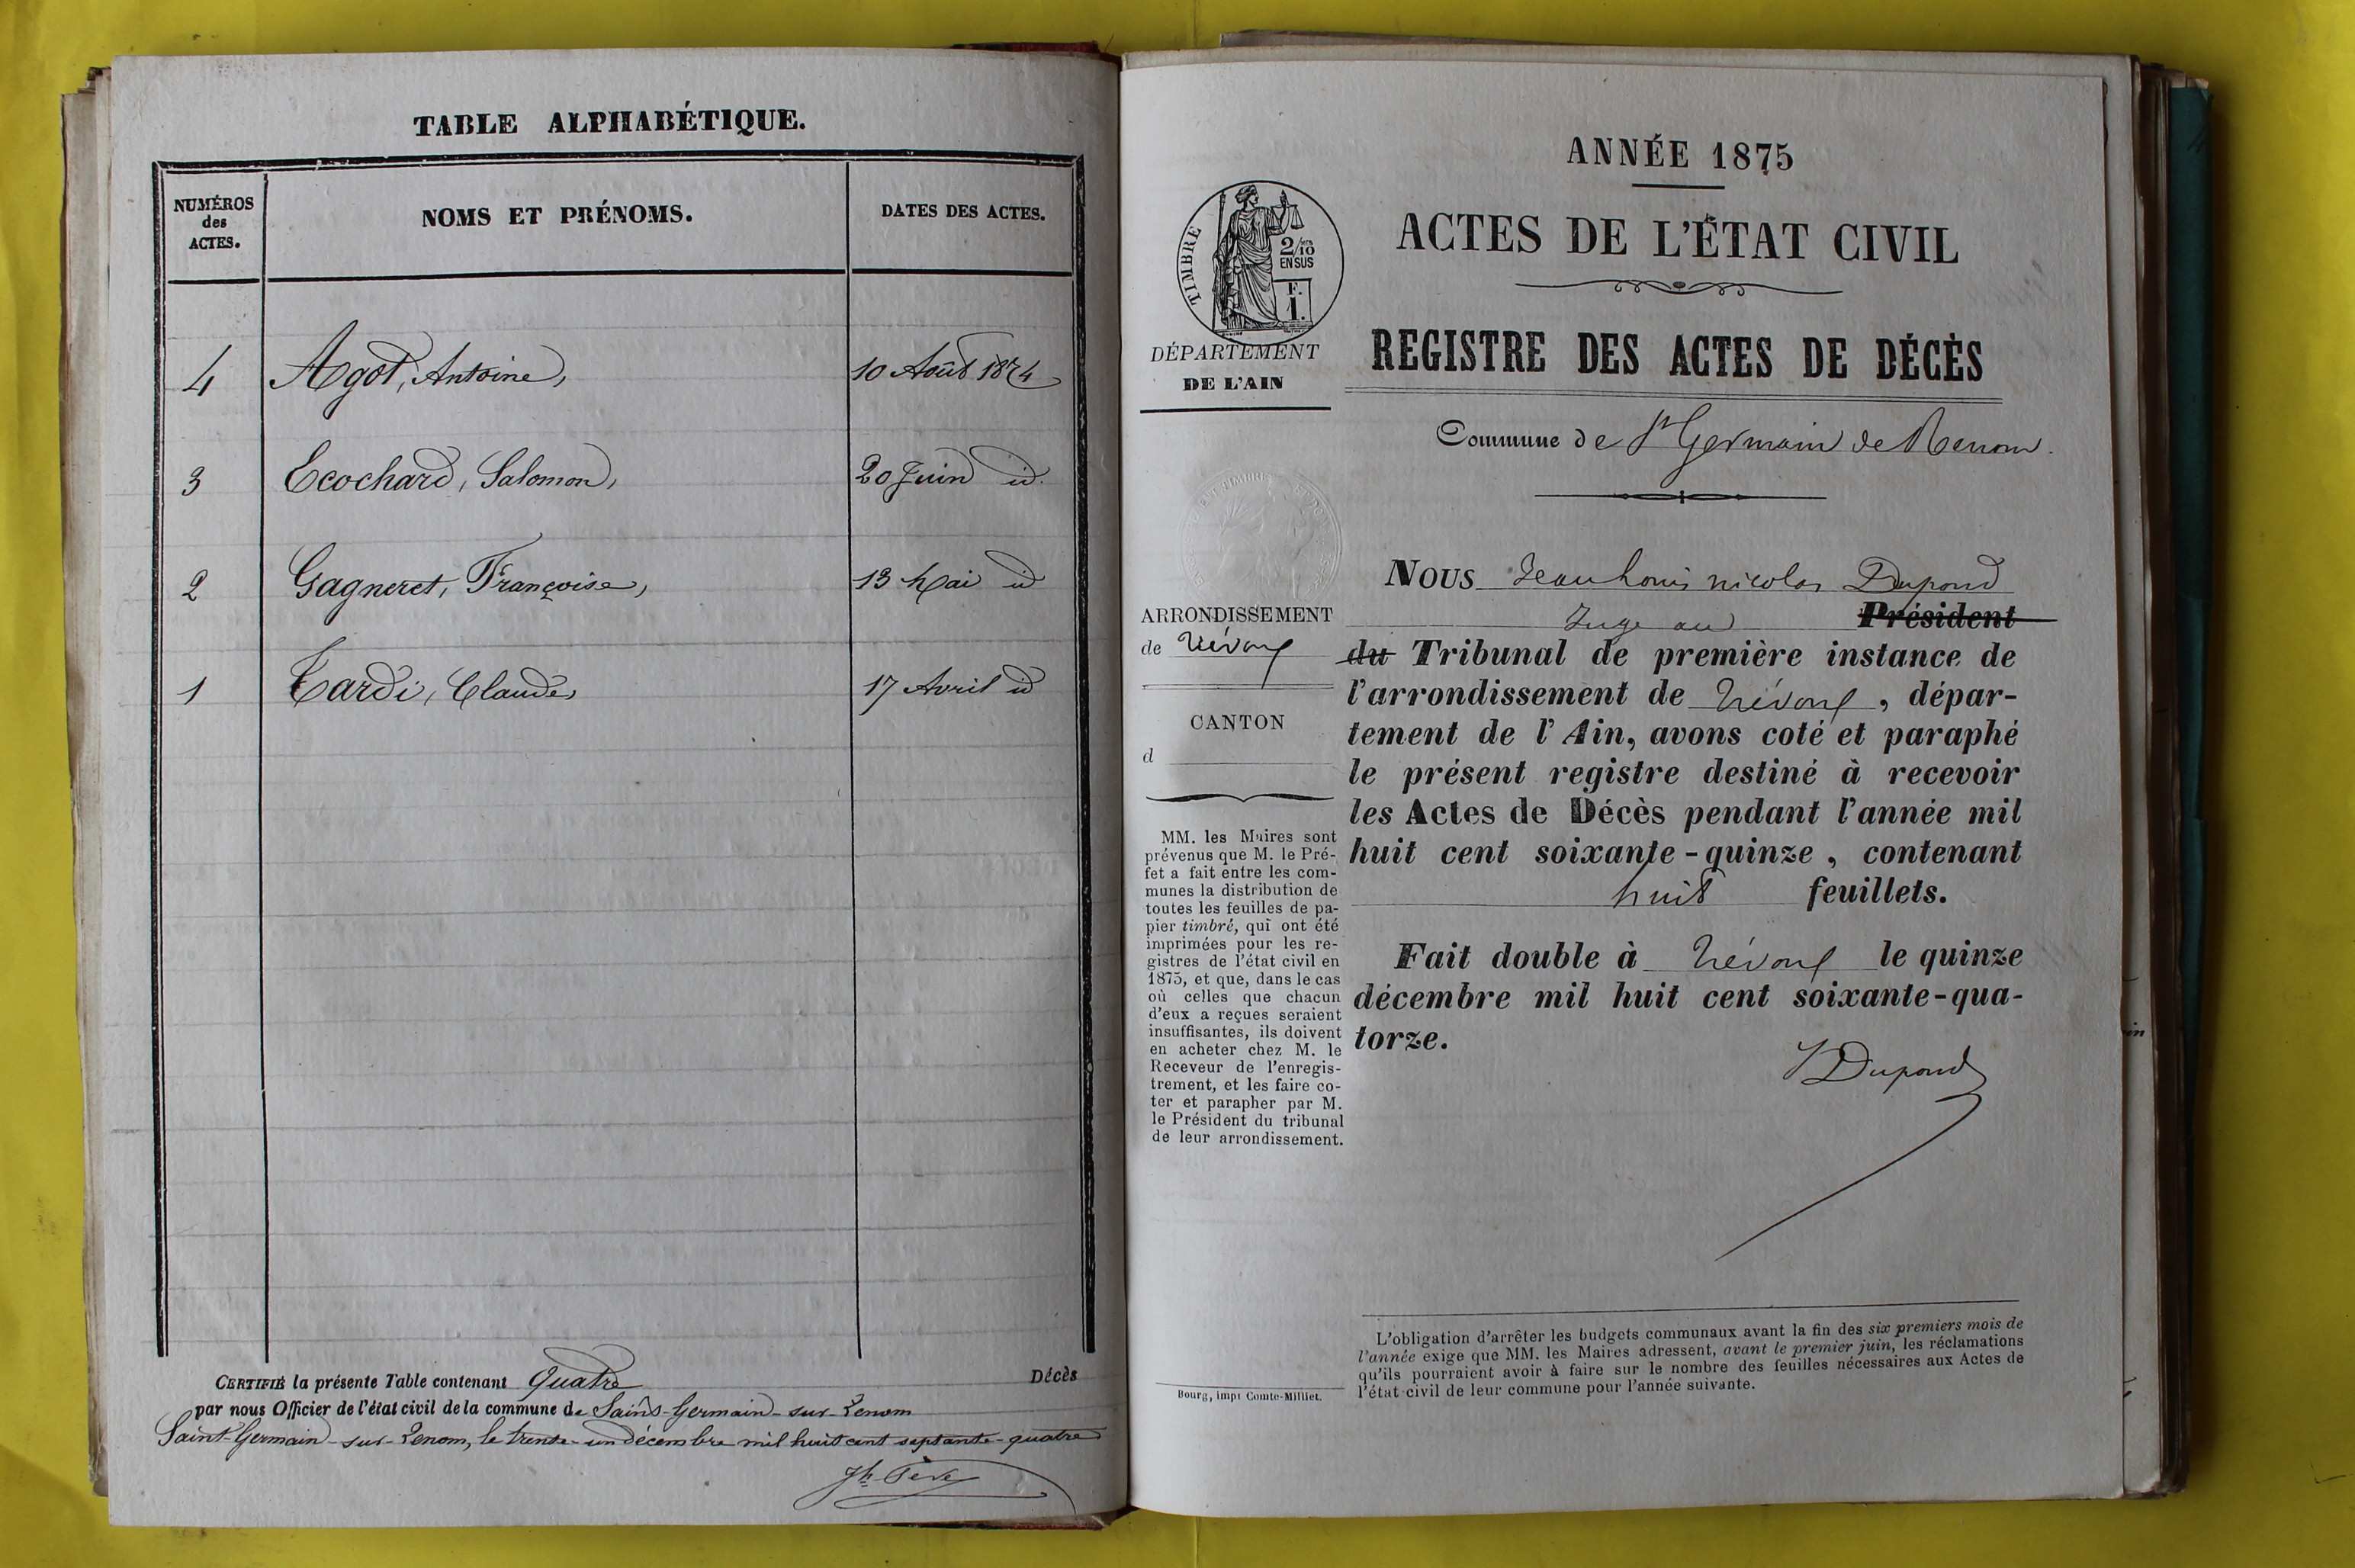 TABLE ALPHABÉTIQUE.
NUMÉROS
des
ACTES.
NOMS ET PRÉNOMS.
DATES DES ACTES.
4 Agot, Antoine, 10 Août 1874
3 Ecochard, Salomon, 20 Juin id.
2 Gagneret, Françoise, 13 Mai id
1 Tardi, Claude, 17 Avril id
CERTIFIÉ la présente Table contenant Quatre Décès
par nous Officier de l'état civil de la commune de Saint-Germain-sur-Renom
Saint-Germain-sur-Renom, le trente-un décembre mil huit cent septante-quatre
ANNÉE 1875
ACTES DE L'ÉTAT CIVIL
REGISTRE DES ACTES DE DÉCÈS
Commune de St Germain de Renom.
TIMBRE
2/10
EN SUS
F.
1.
DÉPARTEMENT
DE L'AIN
ARRONDISSEMENT
de Trévoux
CANTON
d
MM. les Maires sont
prévenus que M. le Pré-
fet a fait entre les com-
munes la distribution de
toutes les feuilles de pa-
pier timbré, qui ont été
imprimées pour les re-
gistres de l'état civil en
1875, et que, dans le cas
où celles que chacun
d'eux a reçues seraient
insuffisantes, ils doivent
en acheter chez M. le
Receveur de l'enregis-
trement, et les faire co-
ter et parapher par M.
le Président du tribunal
de leur arrondissement.
Bourg, impr Comte-Milliet.
NOUS Jean Louis nicolas Dupond
Juge au Président
du Tribunal de première instance de
l'arrondissement de Trévoux, dépar-
tement de l'Ain, avons coté et paraphé
le présent registre destiné à recevoir
les Actes de Décès pendant l'année mil
huit cent soixante-quinze, contenant
huit feuillets.
Fait double à Trévoux le quinze
décembre mil huit cent soixante-qua-
torze.
Dupond
L'obligation d'arrêter les budgets communaux avant la fin des six premiers mois de
l'année exige que MM. les Maires adressent, avant le premier juin, les réclamations
qu'ils pourraient avoir à faire sur le nombre des feuilles nécessaires aux Actes de
l'état civil de leur commune pour l'année suivante.